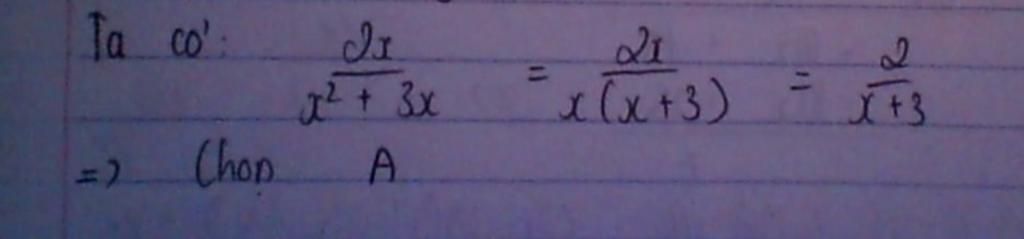 Ta có: 2x / x² + 3x = 2x / x(x+3) = 2 / x+3
=> Chọn A